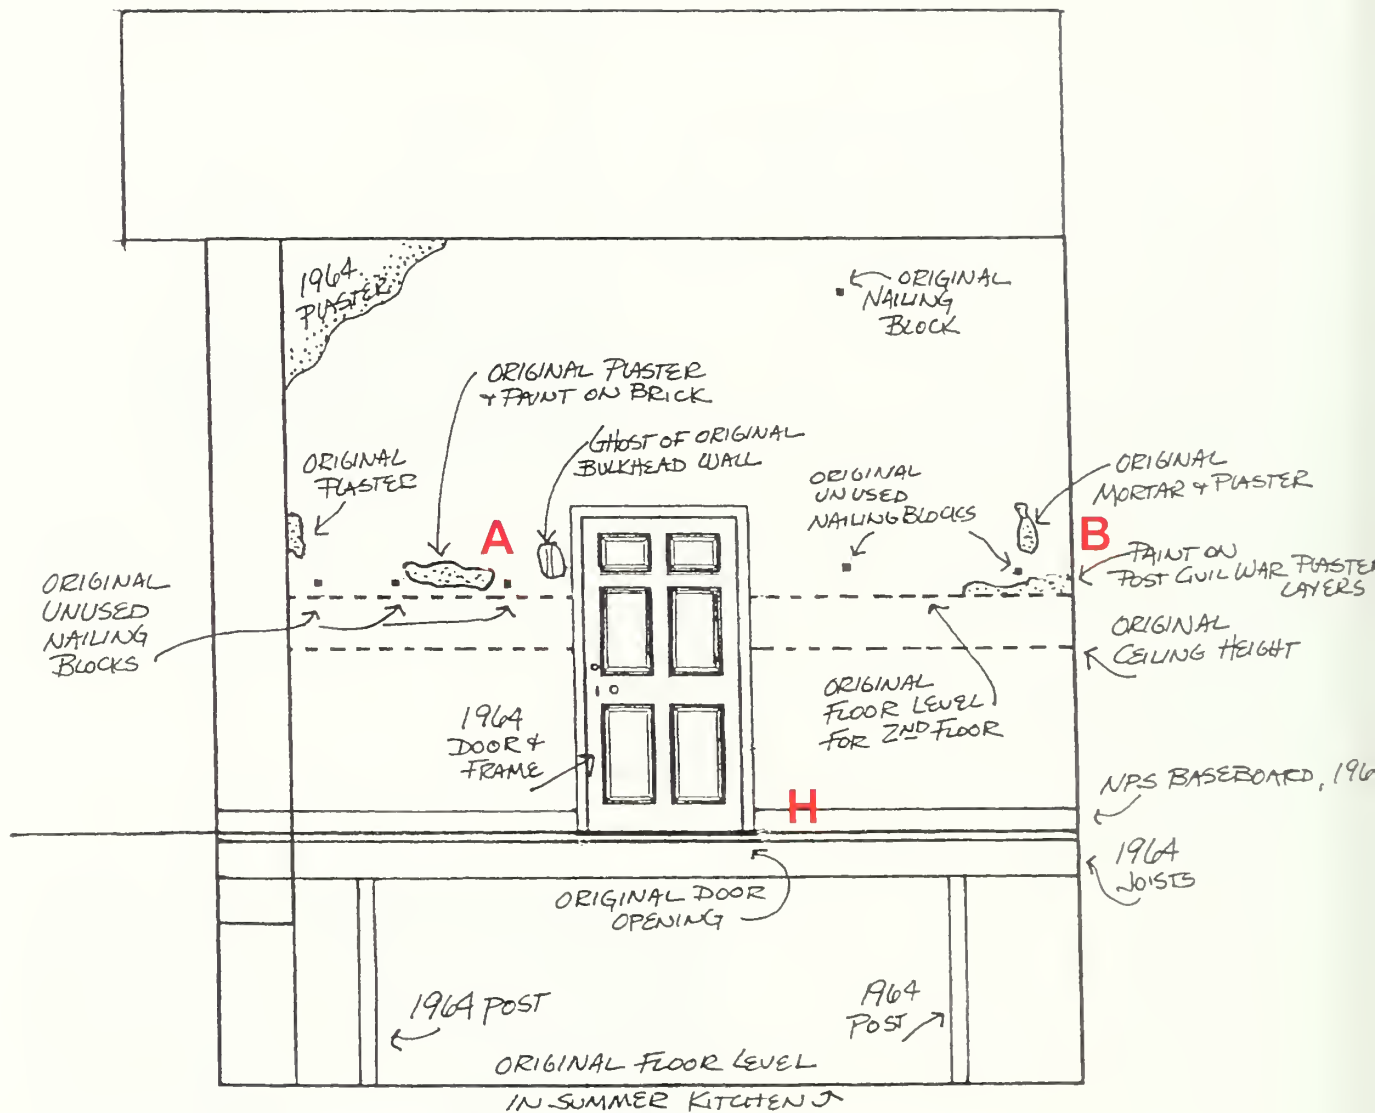 1964
PLASTER
ORIGINAL
NAILING
BLOCK
ORIGINAL PLASTER
& PAINT ON BRICK
GHOST OF ORIGINAL
BULKHEAD WALL
ORIGINAL
PLASTER
ORIGINAL
UNUSED
NAILING BLOCKS
ORIGINAL
MORTAR & PLASTER
A
B
PAINT ON
POST CIVIL WAR PLASTER
LAYERS
ORIGINAL
UNUSED
NAILING
BLOCKS
ORIGINAL
CEILING HEIGHT
ORIGINAL
FLOOR LEVEL
FOR 2ND FLOOR
1964
DOOR &
FRAME
H
NPS BASEBOARD, 196
1964
JOISTS
ORIGINAL DOOR
OPENING
1964 POST
1964
POST
ORIGINAL FLOOR LEVEL
IN SUMMER KITCHEN